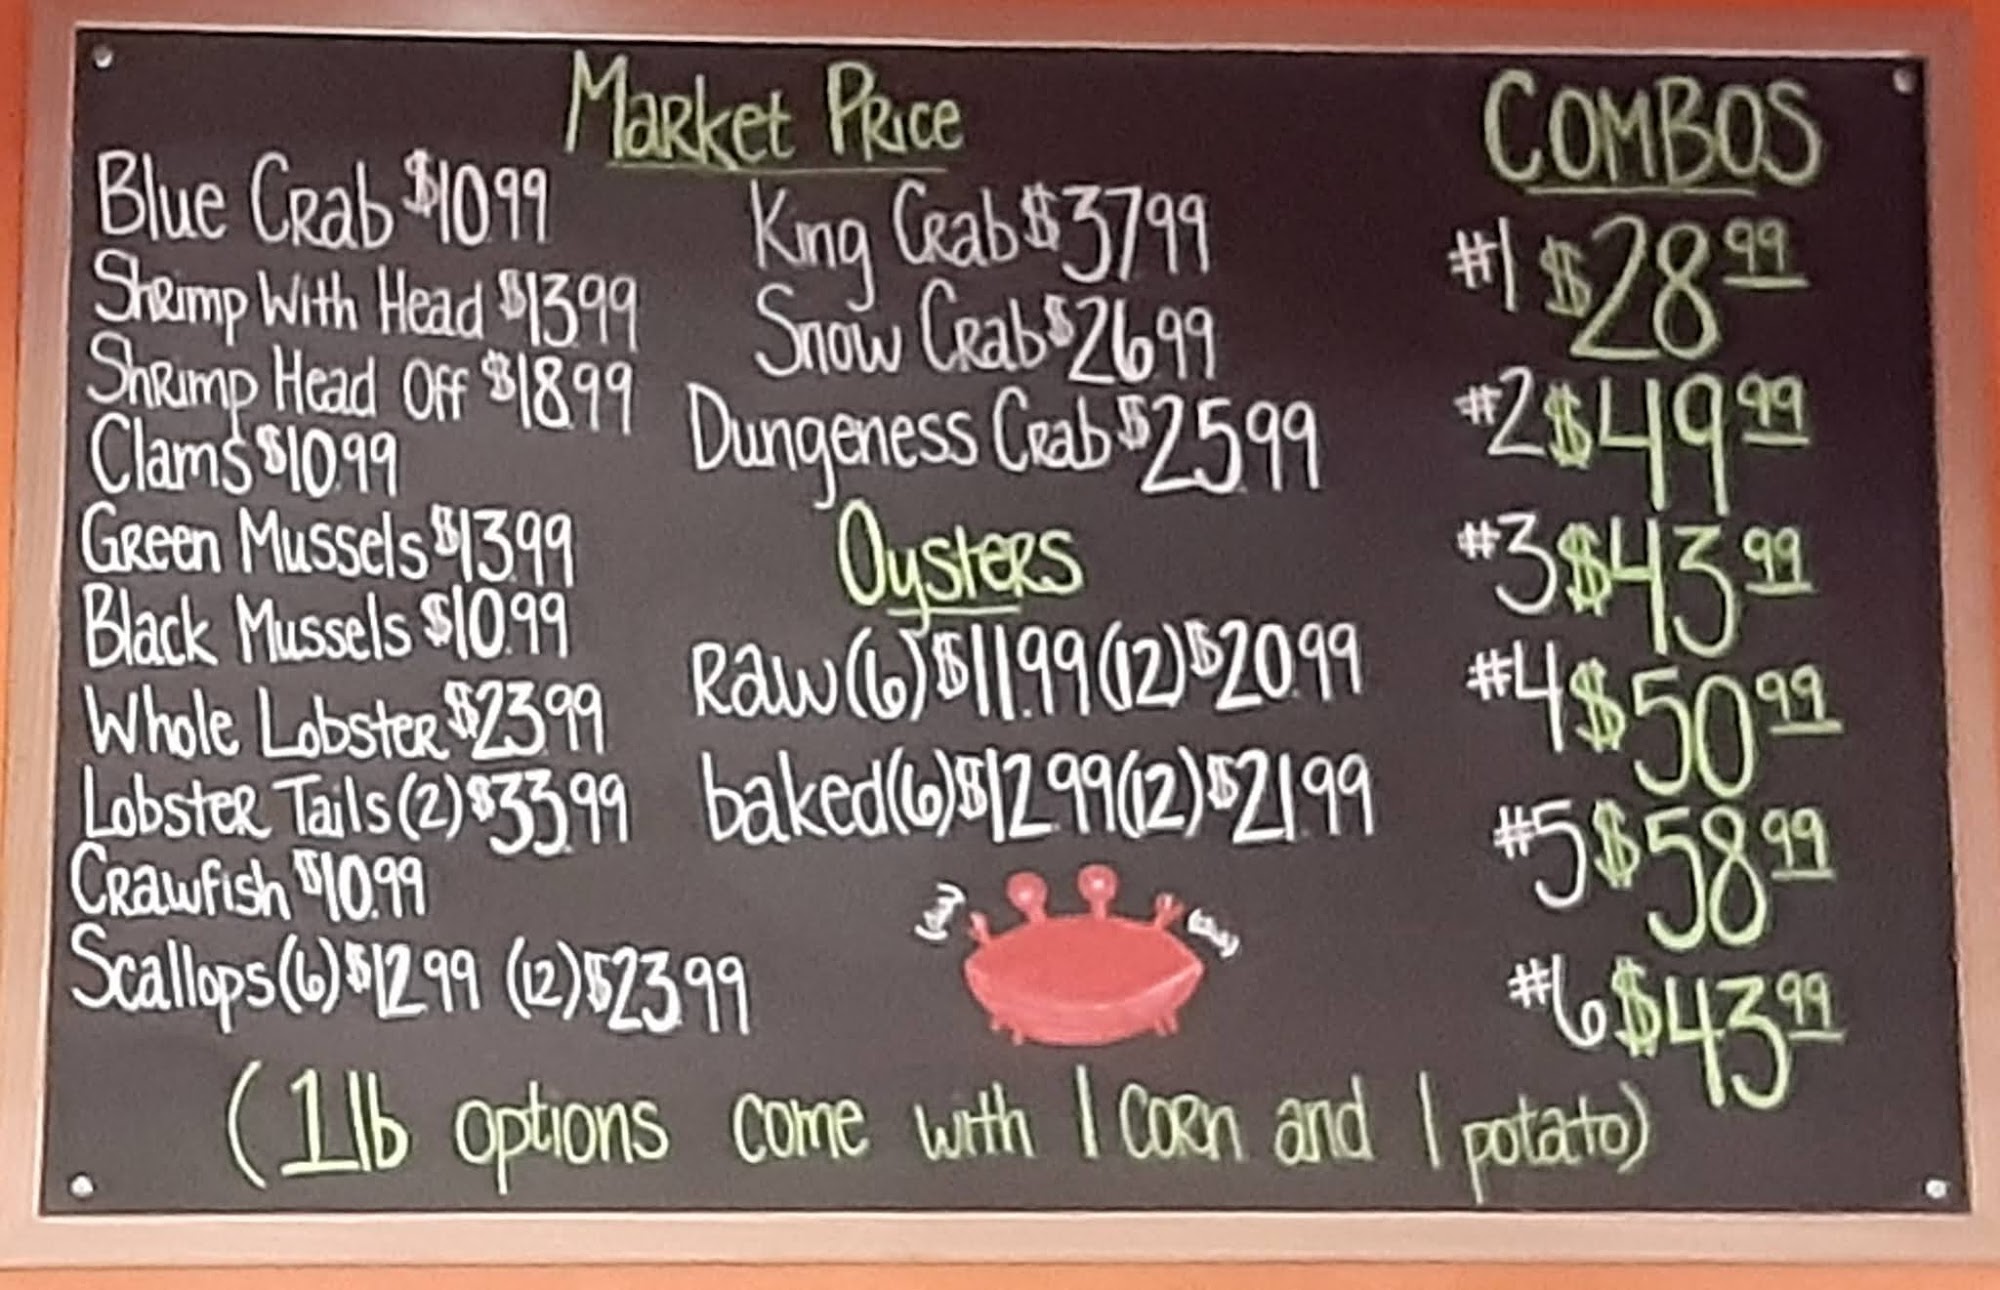 Market Price
Blue Crab $10.99
Shrimp With Head $13.99
Shrimp Head Off $18.99
Clams $10.99
Green Mussels $13.99
Black Mussels $10.99
Whole Lobster $23.99
Lobster Tails (2) $33.99
Crawfish $10.99
Scallops (6) $12.99 (12) $23.99
King Crab $37.99
Snow Crab $26.99
Dungeness Crab $25.99
Oysters
Raw (6) $11.99 (12) $20.99
baked (6) $12.99 (12) $21.99
COMBOS
#1 $28.99
#2 $49.99
#3 $43.99
#4 $50.99
#5 $58.99
#6 $43.99
(1 lb options come with 1 corn and 1 potato)